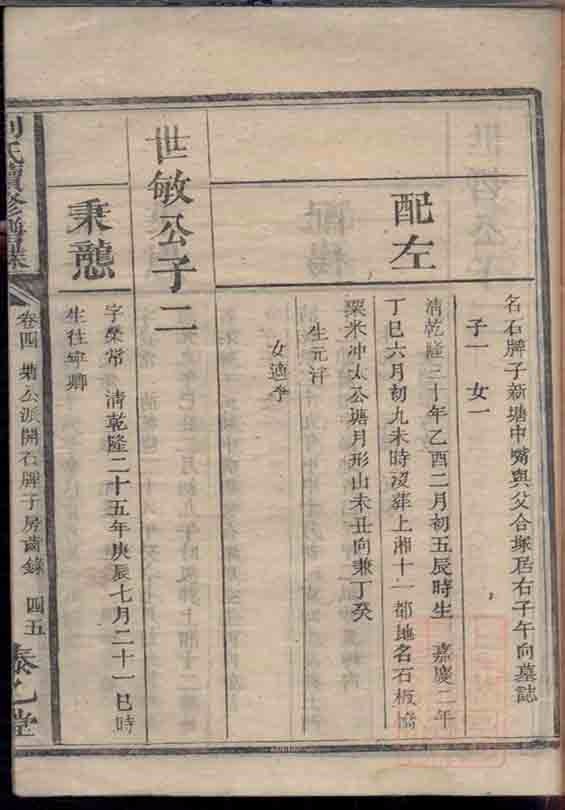 名石牌子新塘中嘴與父合塚居右子午向墓誌
子一 女一
配左
清乾隆三十年乙酉二月初五辰時生 嘉慶二年
丁巳六月初九未時沒葬上湘十一都地名石板橋
粟米冲太公塘月形山未丑向兼丁癸
生元泮
女適李
世敏公子二
秉戇
字榮常 清乾隆二十五年庚辰七月二十一巳時
生往寧鄉
劉氏續修譜
卷四 塘公派開石牌子房齒錄 四五
泰乙堂